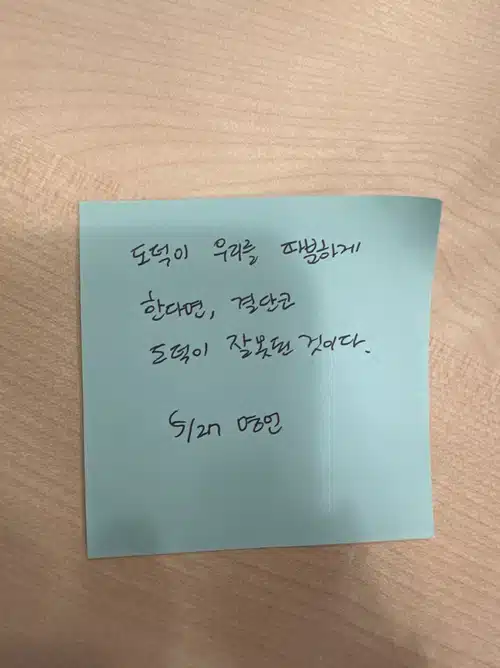 도덕이 우리를 따분하게
한다면, 결단코
도덕이 잘못된 것이다.
5/27 명언